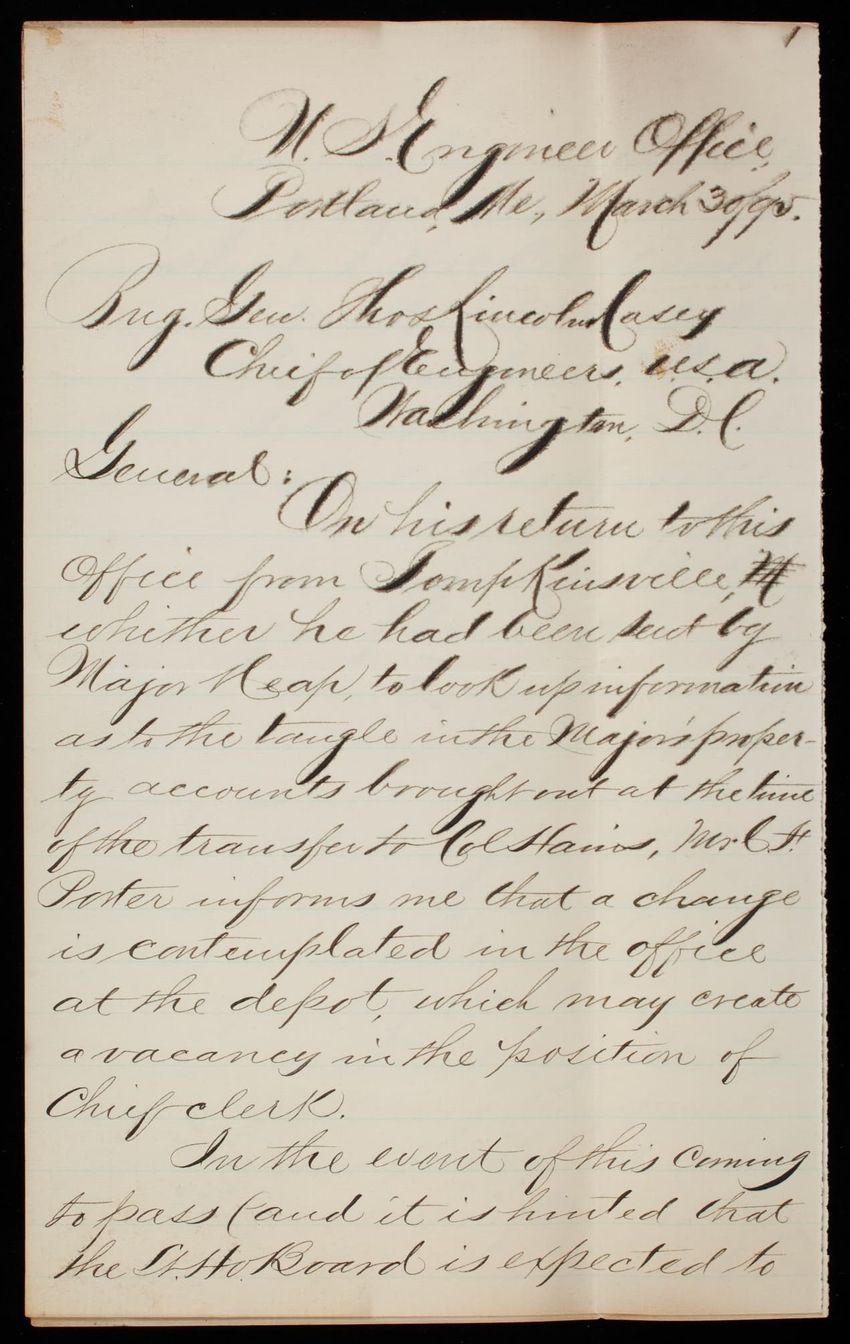 1
U. S. Engineer Office,
Portland, Me., March 30/95.
Brig. Gen. Thos Lincoln Casey
Chief of Engineers, U.S.A.
Washington, D.C.
General:
On his return to this
Office from Tompkinsville,
whither he had been sent by
Major Heap, to look up information
as to the tangle in the Major's proper-
ty accounts brought out at the time
of the transfer to Col Hains, Mr. C. H.
Porter informs me that a change
is contemplated in the office
at the depot, which may create
a vacancy in the position of
Chief clerk.
In the event of this coming
to pass (and it is hinted that
the Lt. Ho. Board is expected to